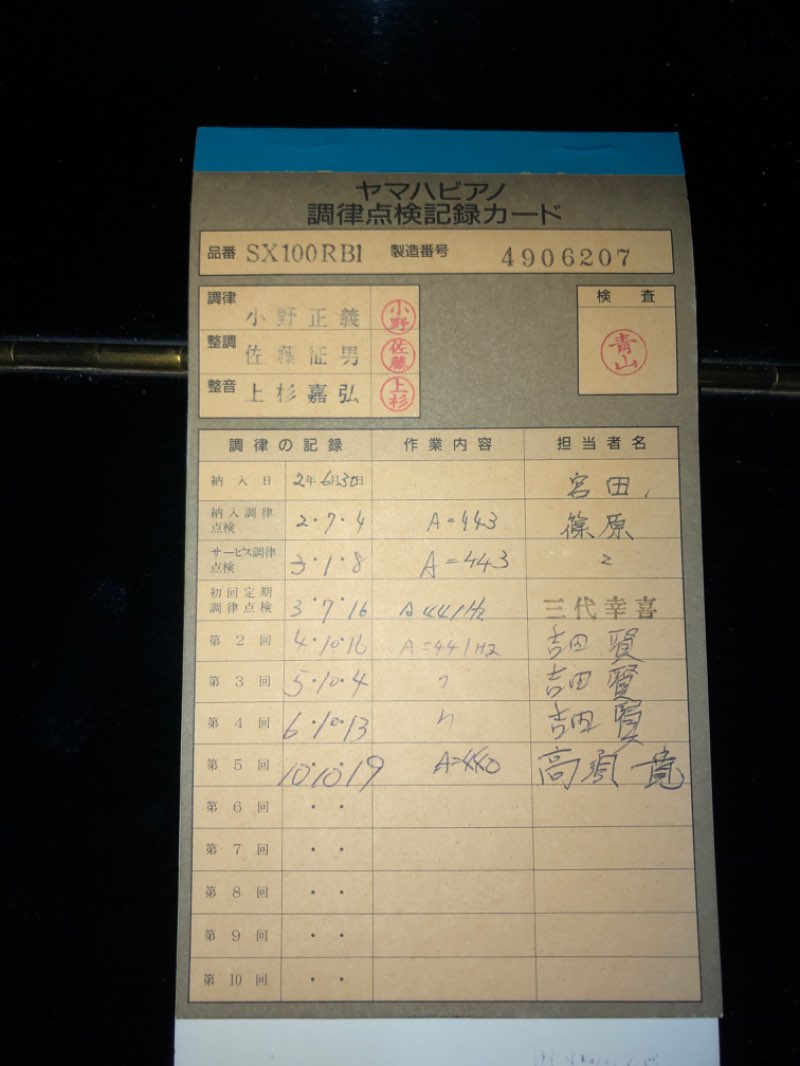 ヤマハピアノ
調律点検記録カード
品番 SX100RBl 製造番号 4906207
調律 小野正義 小野 検査
整調 佐藤征男 佐藤 青山
整音 上杉嘉弘 上杉
調律の記録 作業内容 担当者名
納入日 2年6月30日 宮田
納入調律点検 2・7・4 A=443 篠原
サービス調律点検 3・1・8 A=443
初回定期調律点検 3・7・16 A441Hz 三代幸喜
第2回 4・10・16 A=441Hz 吉田 賢
第3回 5・10・4 〃 吉田 賢
第4回 6・10・13 〃 吉田 賢
第5回 10・10・19 A=440 高須
第6回 ・ ・
第7回 ・ ・
第8回 ・ ・
第9回 ・ ・
第10回 ・ ・